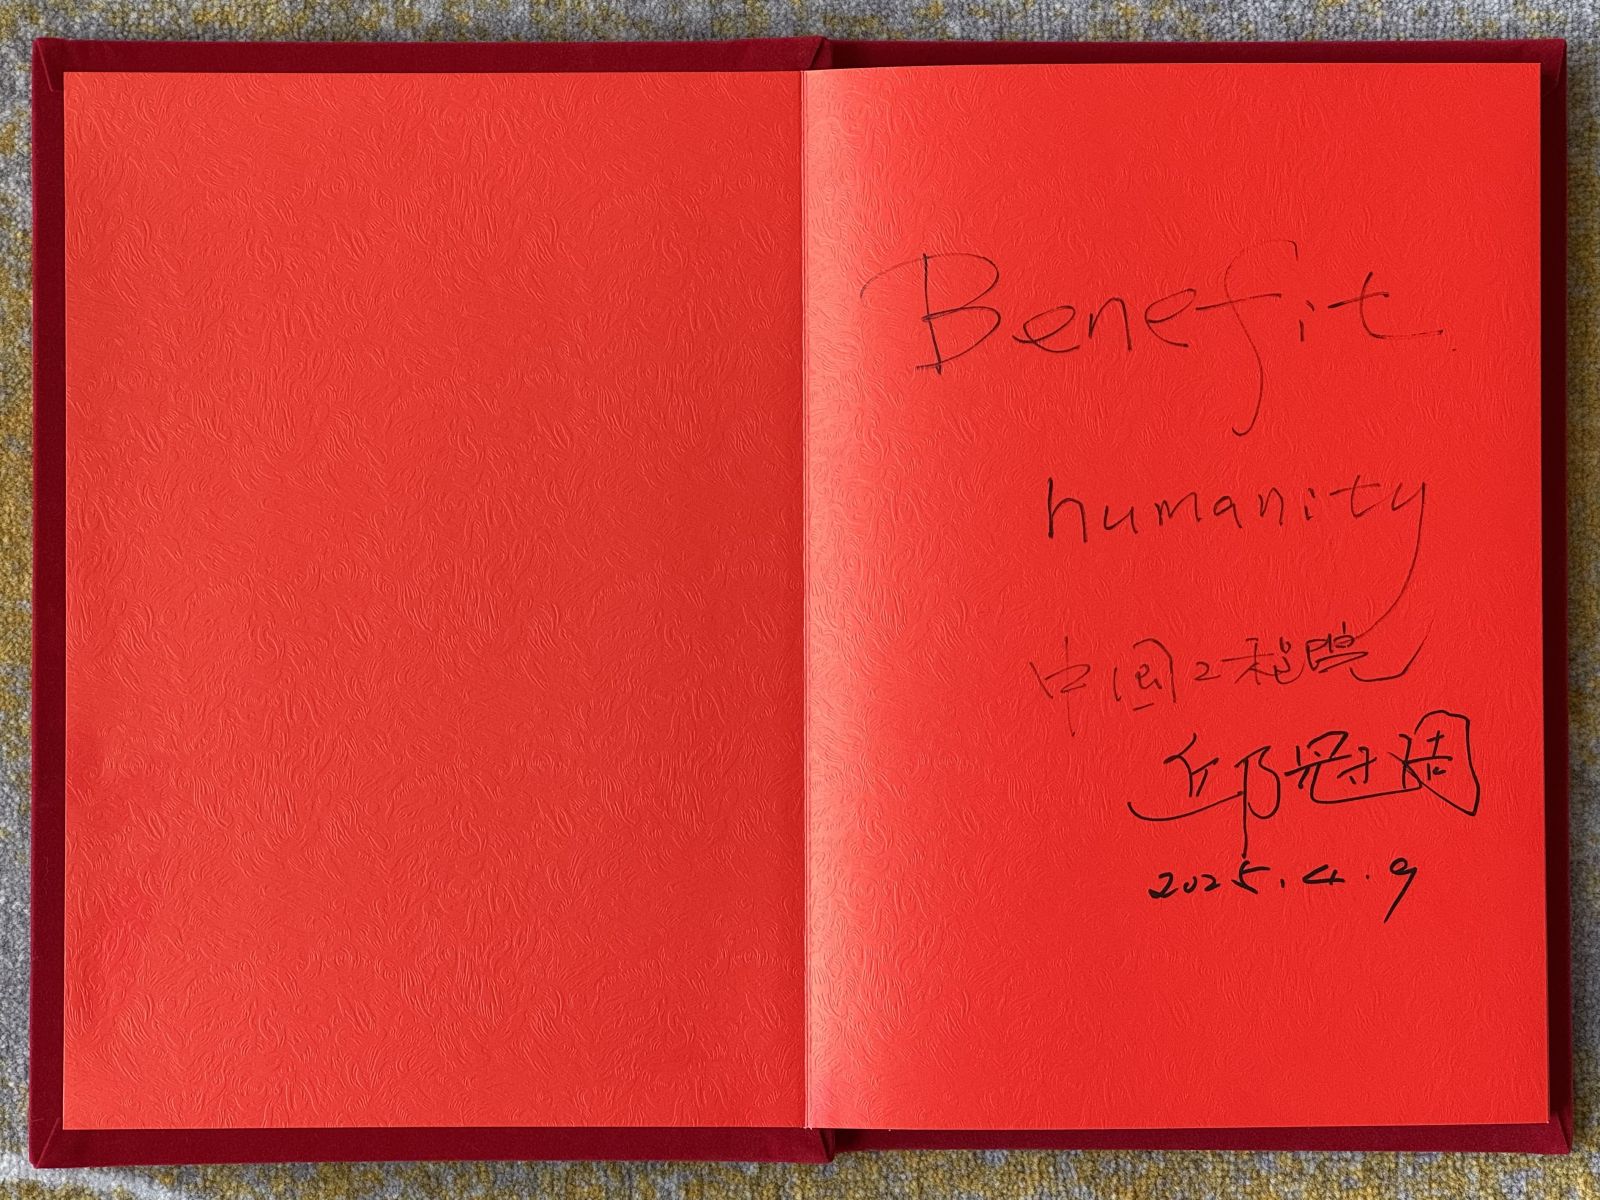 Benefit
humanity
中国工程院
邱冠周
2025.4.9